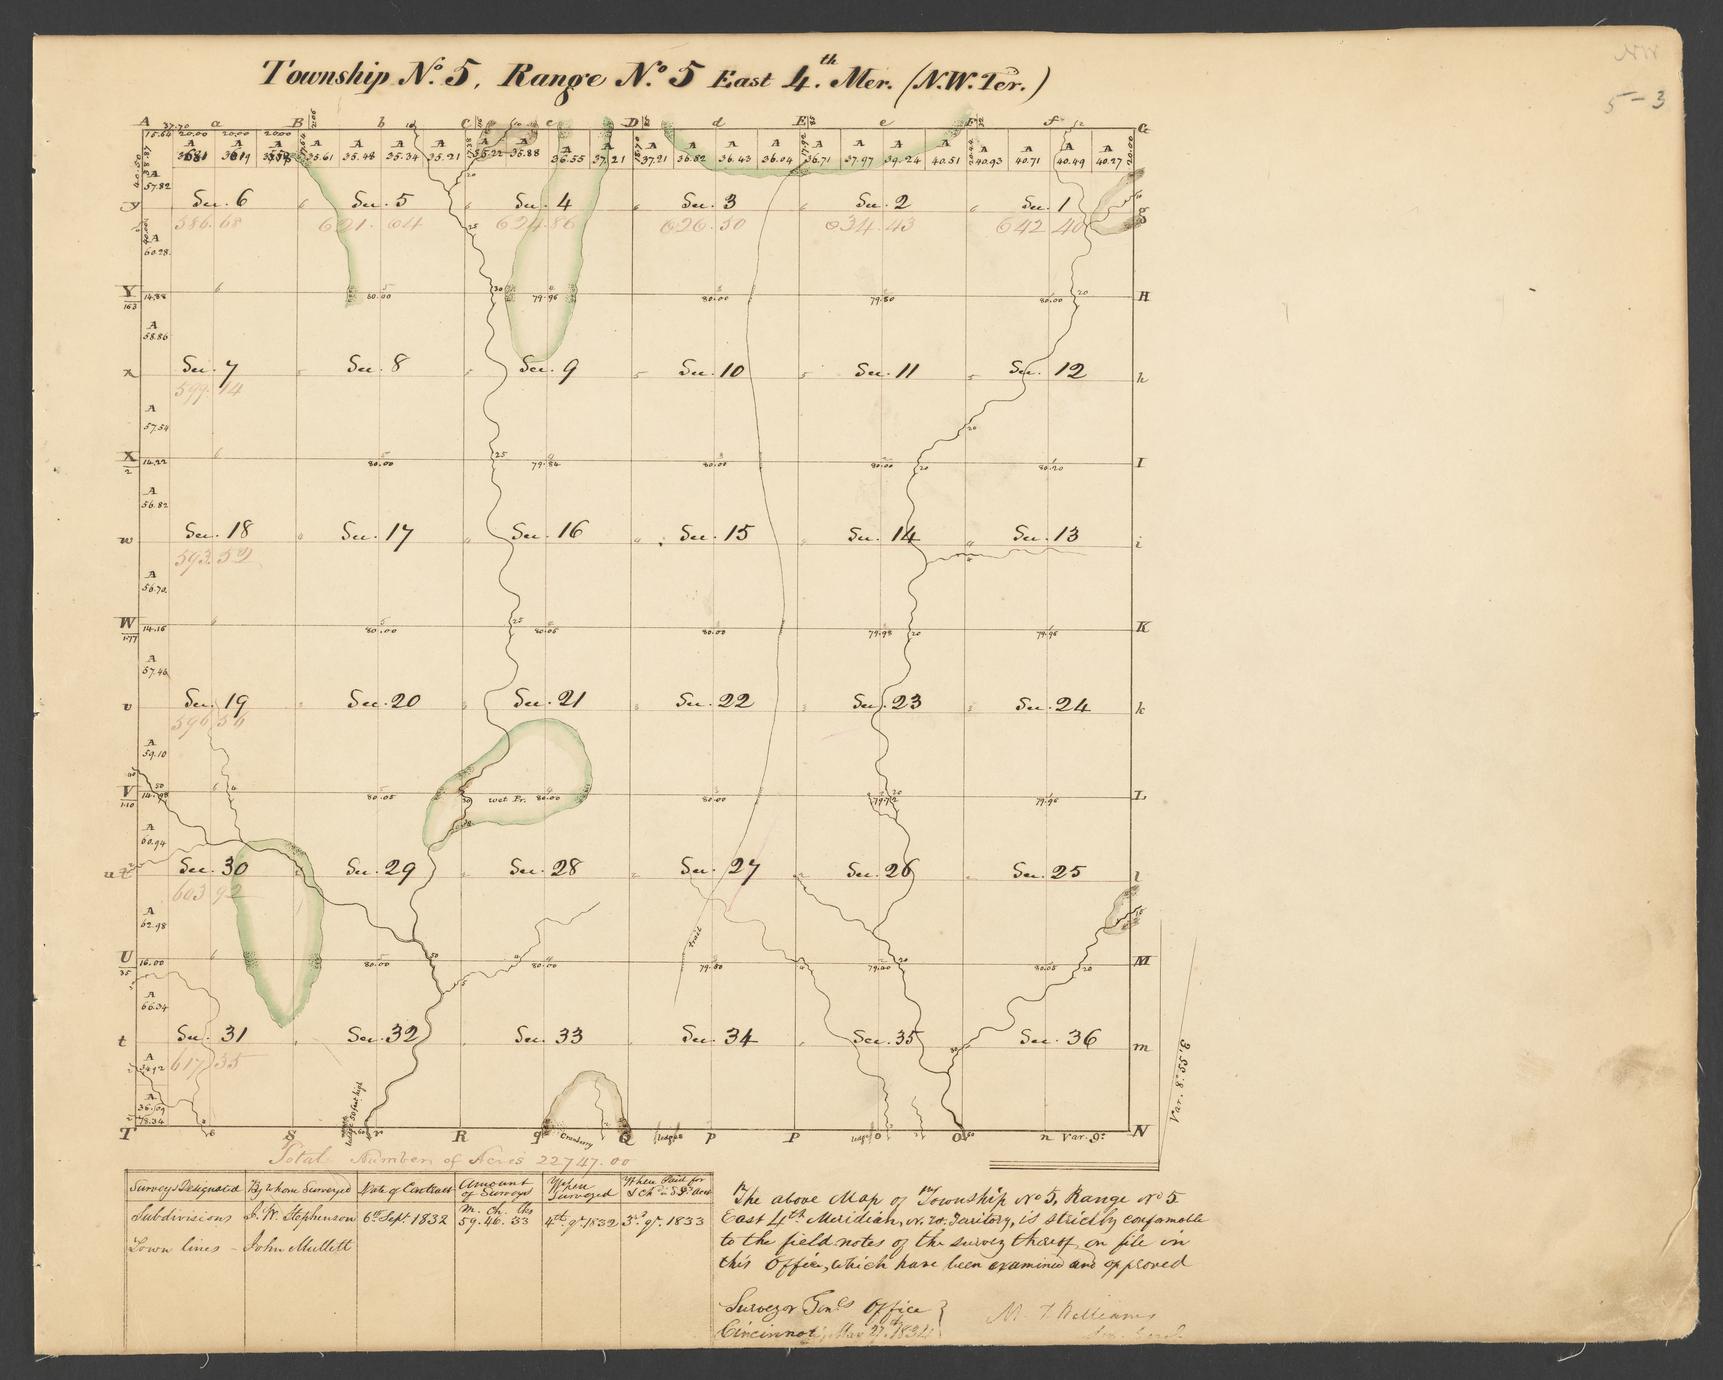 Township No. 5, Range No. 5 East 4.th Mer. (N.W. Ter.)
5-3
A 37.70 a B b C c D d E e F f G
15.64 20.00 20.00 20.00
A A A A A A A A
35.61 35.48 35.34 35.21 35.22 35.88 36.55 37.21 37.21 36.82 36.43 36.04 36.71 37.97 39.24 40.51 40.93 40.71 40.49 40.27
A
57.82
y Sec. 6 Sec. 5 Sec. 4 Sec. 3 Sec. 2 Sec. 1 g
586.68 621.04 624.86 626.50 634.43 642.40
A
60.28
Y 14.88 80.00 79.96 80.00 79.80 80.00 20 H
163
A
58.86
x Sec. 7 Sec. 8 Sec. 9 Sec. 10 Sec. 11 Sec. 12 h
599.14
A
57.54
20
X 14.22 80.00 25 79.84 80.00 80.00 20 80.20 I
2
A
56.82
w Sec. 18 Sec. 17 Sec. 16 Sec. 15 Sec. 14 Sec. 13 i
593.52
A
56.72
W 14.16 80.00 25 80.05 80.00 79.98 20 79.96 K
1.77
A
57.46
v Sec. 19 Sec. 20 Sec. 21 Sec. 22 Sec. 23 Sec. 24 k
596.56
A
59.10
V 80.05 wet Pr. 80.00 80.00 20 79.96 L
1.10
A
60.94
u Sec. 30 Sec. 29 Sec. 28 Sec. 27 Sec. 26 Sec. 25 l
603.92
A
62.98
trail
U 16.00 80.00 50 80.00 79.80 20 80.05 20 M
35
A
66.34
t Sec. 31 Sec. 32 Sec. 33 Sec. 34 Sec. 35 Sec. 36 m
617.35
A
A
T S r R q Q P P o O n Var. 9° N
ledge 50 feet high
Cranberry
Var. 8°.55'.E
Total Number of Acres 22747.00
Surveys Designated By whom Surveyed Date of Contract Amount of Surveys When Surveyed When Paid for
Subdivisions J. W. Stephenson 6th Sept. 1832 M. Ch. lks 59.46.53 4th qr. 1832 3rd qr. 1833
Town lines - John Mullett
The above Map of Township No 5, Range No 5
East 4th Meridian, N. W. Territory, is strictly conformable
to the field notes of the survey thereof on file in
this Office, which have been examined and approved
Surveyor Genls Office
Cincinnati, May 27th 1834
M. T. Williams